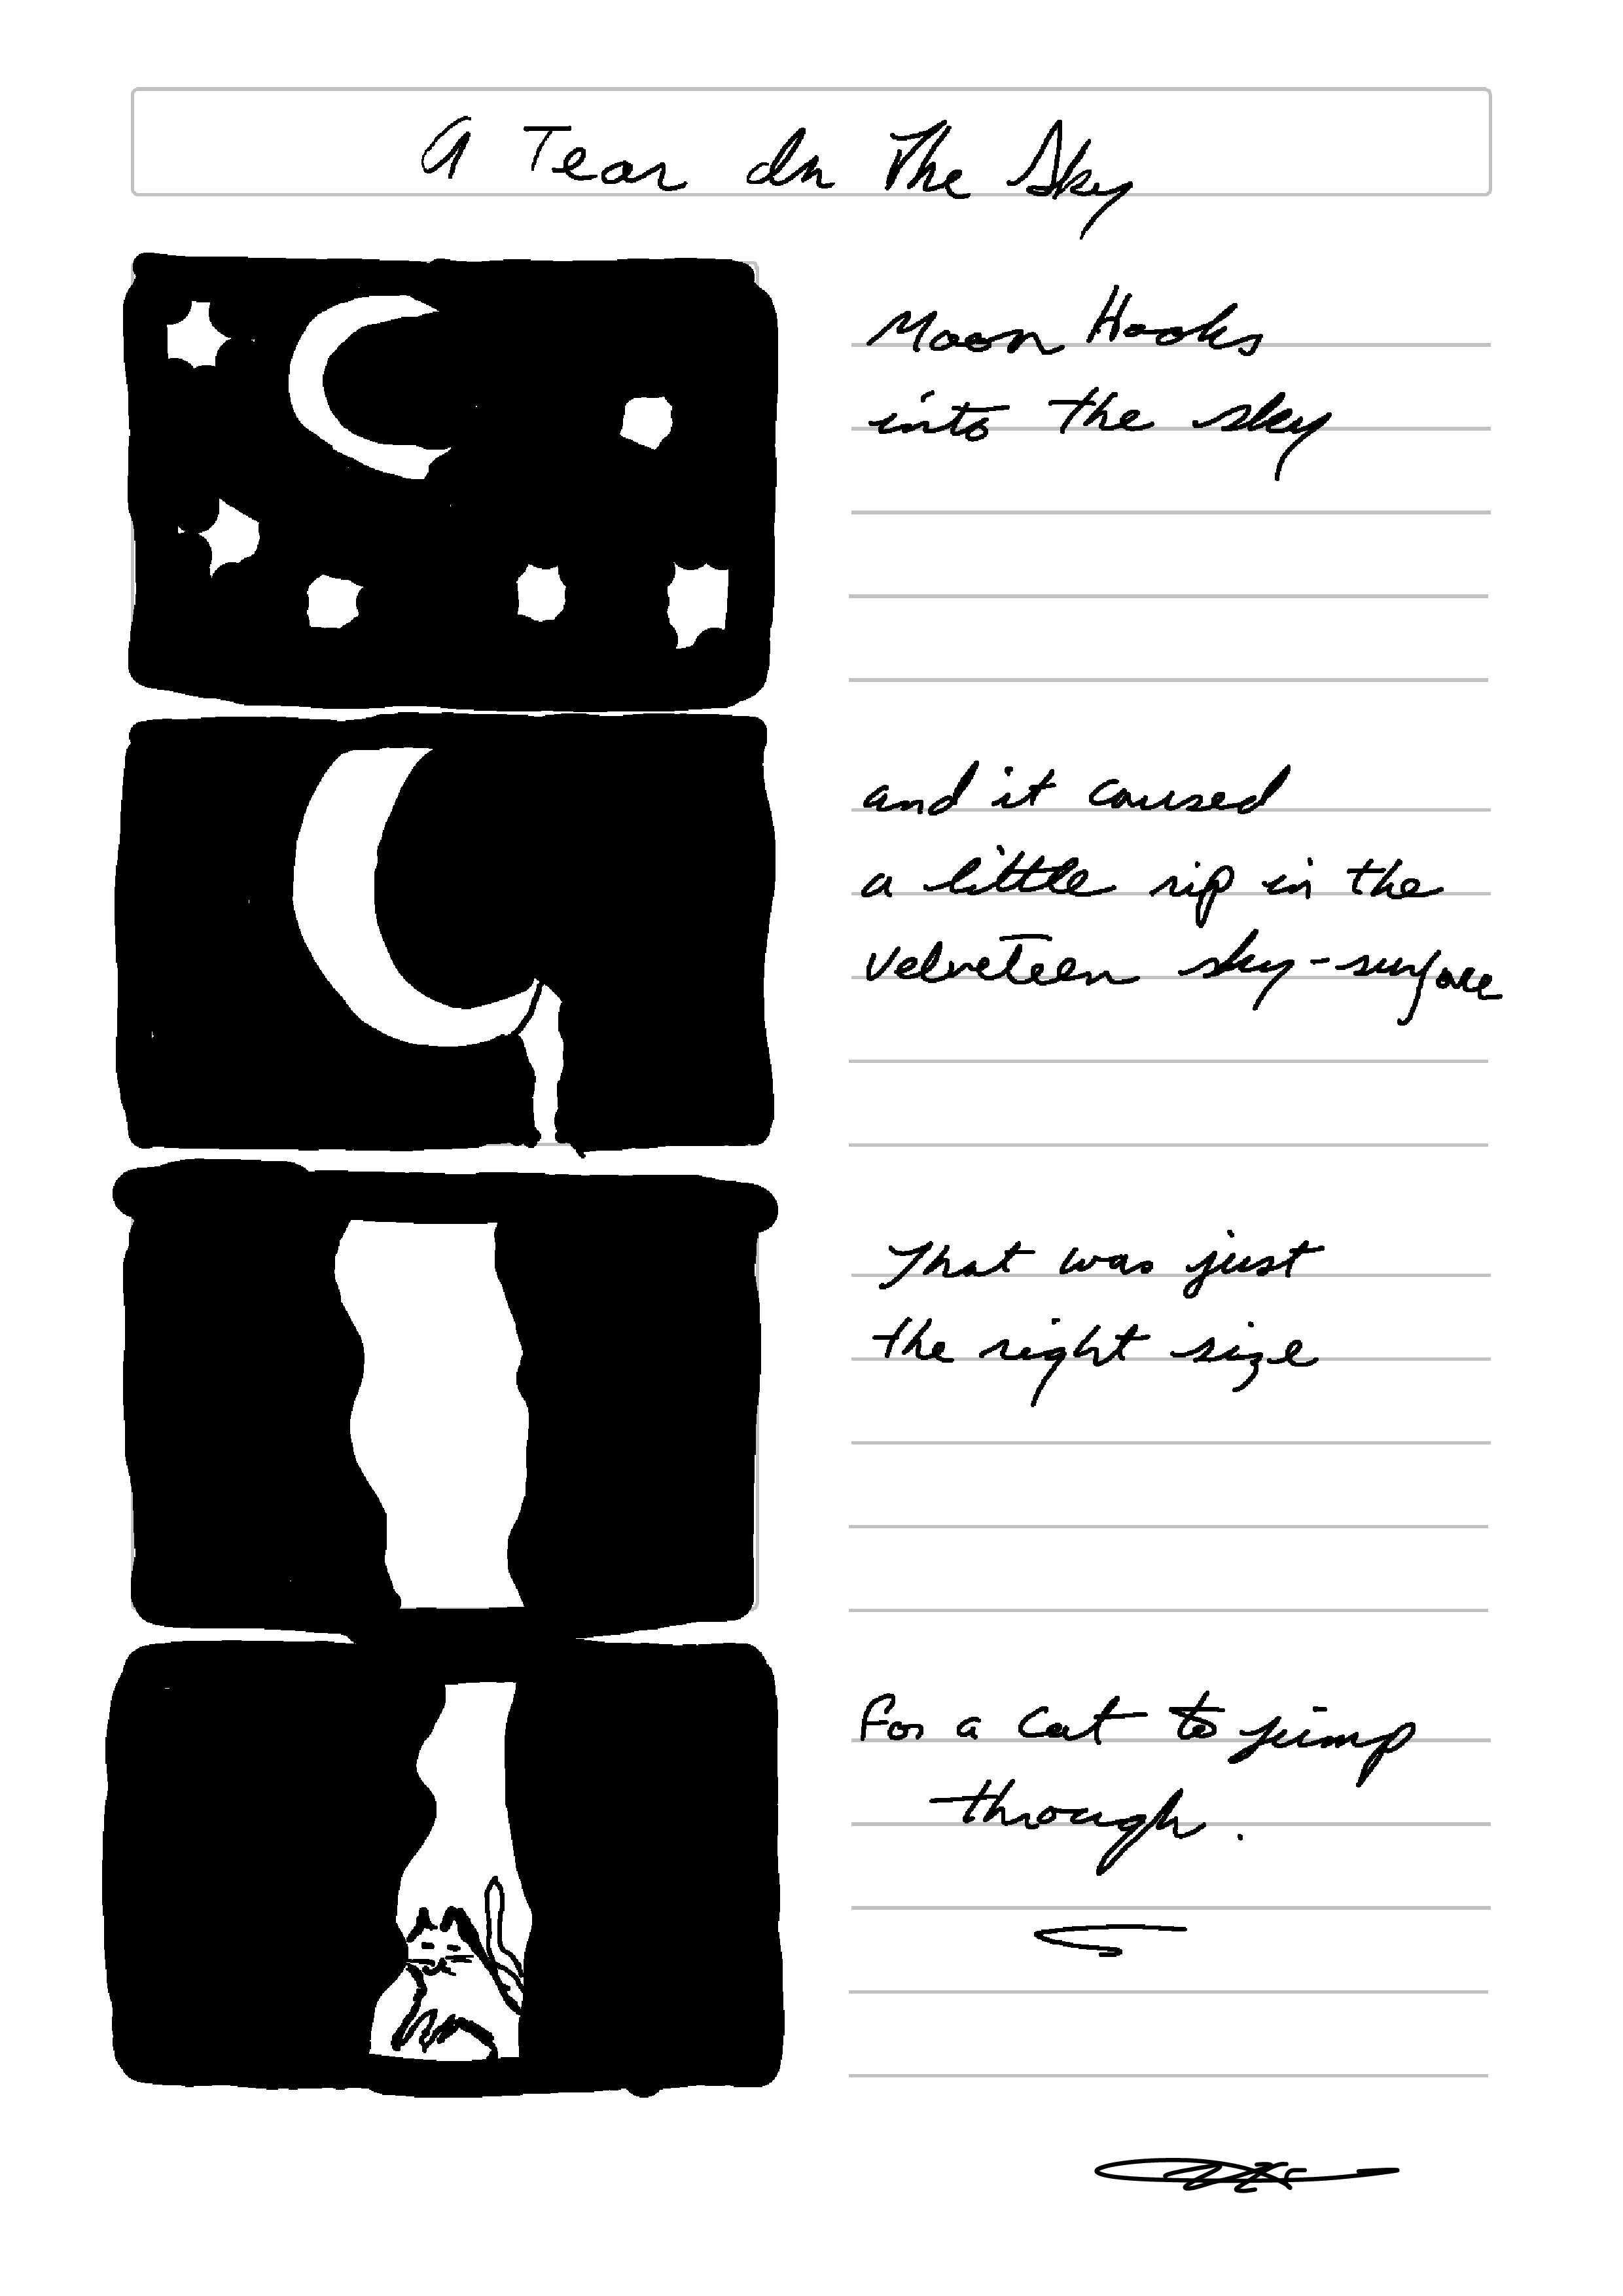 A Tear In The Sky
Moon Hooks
into the sky
and it caused
a little rip in the
velveteen sky-surface
That was just
the right size
For a cat to jump
through.